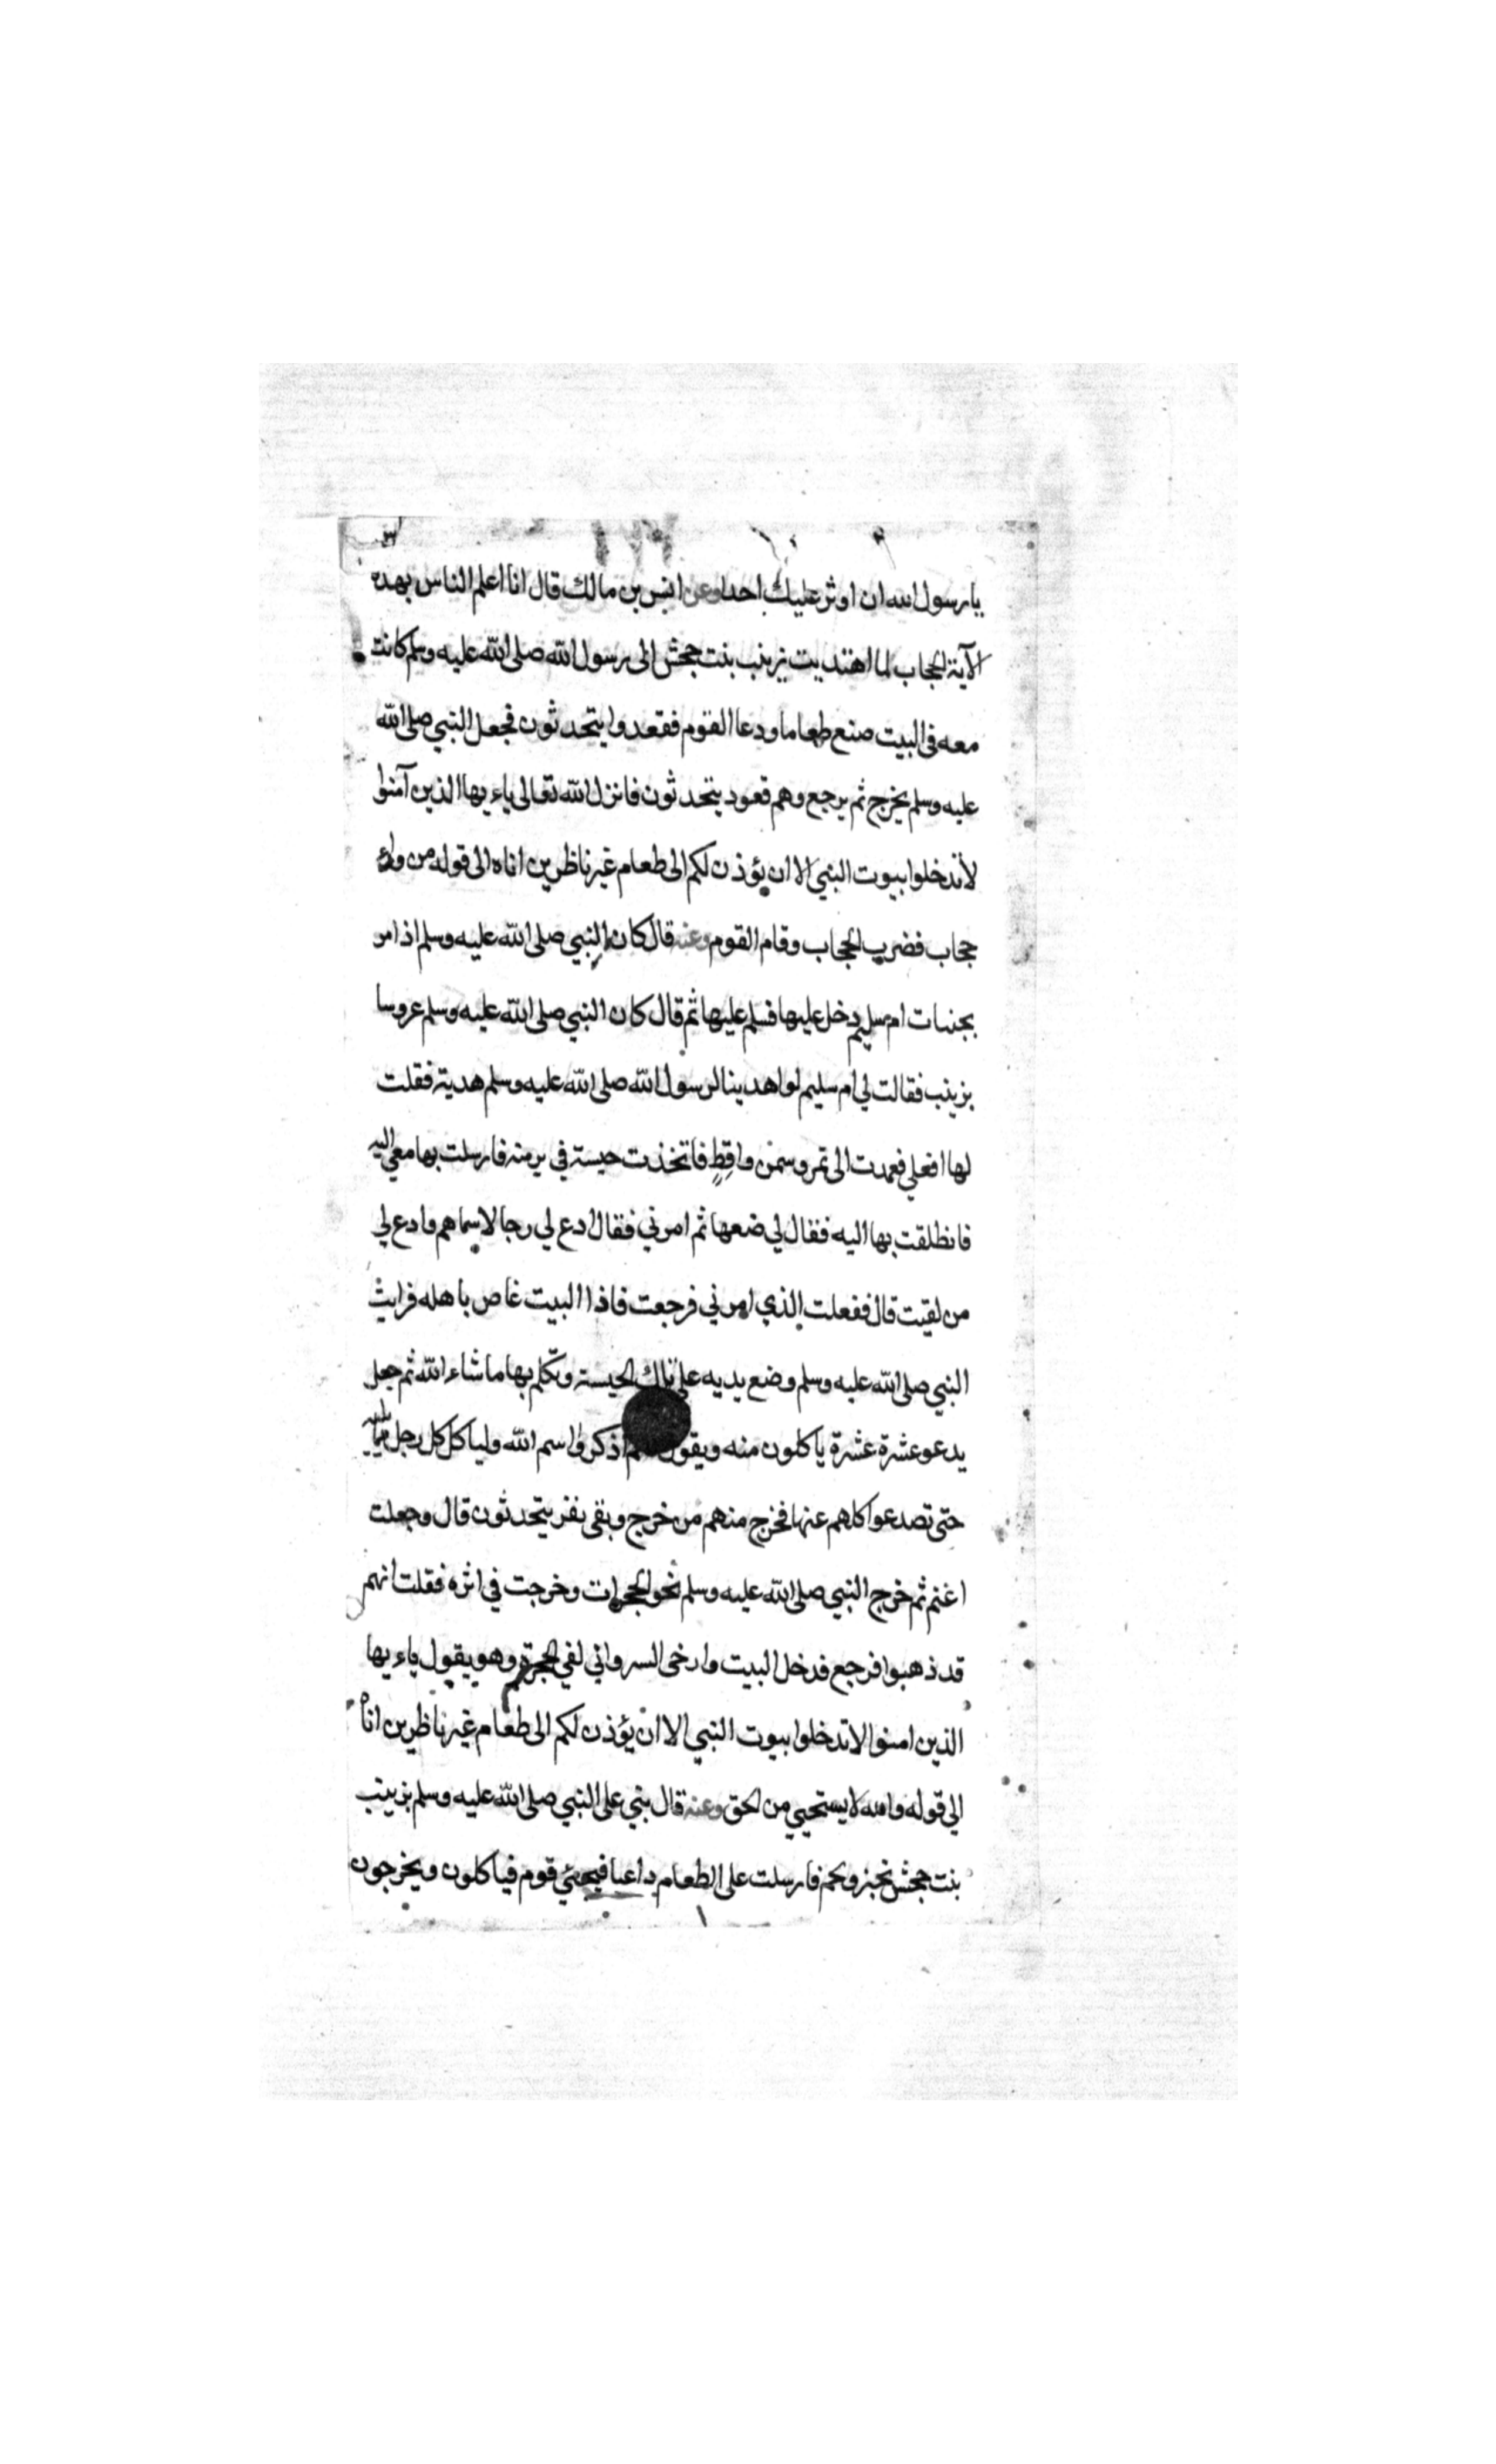 ٣
يا رسول الله ان اوثر عليك احدا وعن انس بن مالك قال انا اعلم الناس بهذه
الآية الحجاب لما اهتديت زينب بنت جحش الى رسول الله صلى الله عليه وسلم كانت
معه فى البيت صنع طعاما ودعا القوم فقعدوا يتحدثون فجعل النبي صلى الله
عليه وسلم يخرج ثم يرجع وهم قعود يتحدثون فانزل الله تعالى ياءيها الذين آمنوا
لا تدخلوا بيوت النبي الا ان يؤذن لكم الى طعام غير ناظرين اناه الى قوله من وراء
حجاب فضرب الحجاب وقام القوم وعنه قال كان النبي صلى الله عليه وسلم اذ امر
بجنبات ام سليم دخل عليها فسلم عليها ثم قال كان النبي صلى الله عليه وسلم عروسا
بزينب فقالت لي ام سليم لو اهدينا لرسول الله صلى الله عليه وسلم هدية فقلت
لها افعلي فعمدت الى تمر وسمن واقط فاتخذت حيسة في برمة فارسلت بها معي اليه
فانطلقت بها اليه فقال لي ضعها ثم امرني فقال ادع لي رجالا سماهم وادع لي
من لقيت قال ففعلت الذي امرني فرجعت فاذا البيت غاص باهله فرايت
النبي صلى الله عليه وسلم وضع يديه على تلك الحيسة وتكلم بها ما شاء الله ثم جعل
يدعو عشرة عشرة ياكلون منه ويقول اذكروا اسم الله ولياكل كل رجل مما يليه
حتى تصدعوا كلهم عنها فخرج منهم من خرج وبقى نفر يتحدثون قال وجعلت
اغنم ثم خرج النبي صلى الله عليه وسلم نحو الحجرات وخرجت في اثره فقلت انهم
قد ذهبوا فرجع فدخل البيت وارخى الستر واني لفي الحجرة وهو يقول ياءيها
الذين امنوا لا تدخلوا بيوت النبي الا ان يؤذن لكم الى طعام غير ناظرين اناه
الي قوله والله لا يستحيي من الحق وعنه قال بني على النبي صلى الله عليه وسلم بزينب
بنت جحش بخبز ولحم فارسلت على الطعام داعيا فيجئي قوم فياكلون ويخرجون